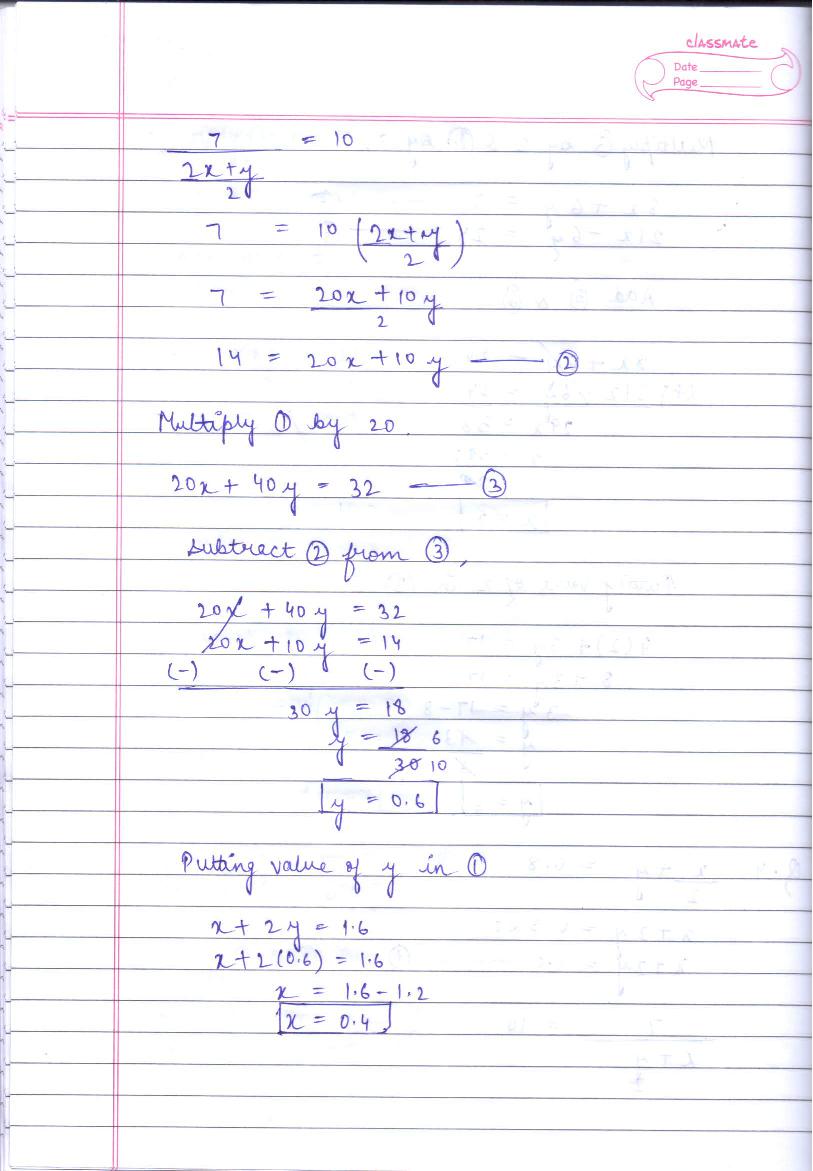 classmate
Date
Page
7 = 10
2x+y
2
7 = 10 (2x+y)
2
7 = 20x + 10y
2
14 = 20x + 10y — ②
Multiply ① by 20.
20x + 40y = 32 — ③
Subtract ② from ③,
20x + 40y = 32
20x + 10y = 14
(-) (-) (-)
30y = 18
y = 18 6
30 10
y = 0.6
Putting value of y in ①
x + 2y = 1.6
x + 2(0.6) = 1.6
x = 1.6 - 1.2
x = 0.4